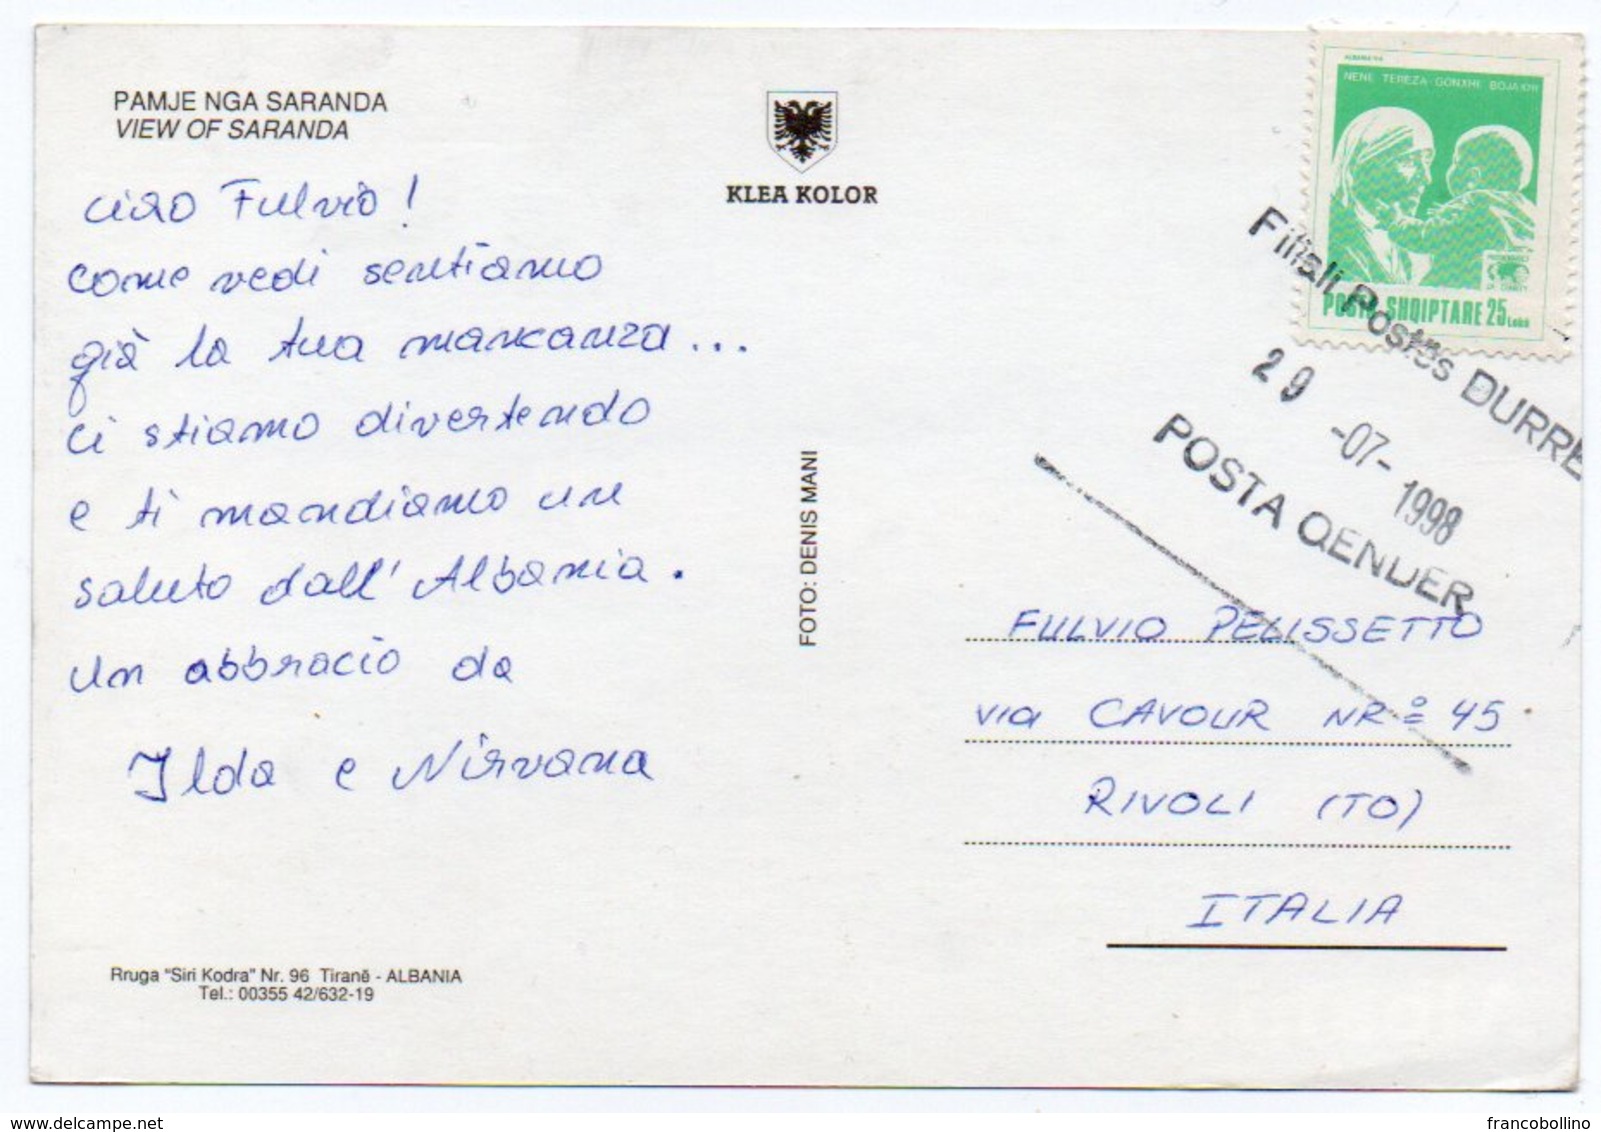 PAMJE NGA SARANDA
VIEW OF SARANDA
KLEA KOLOR
ciao Fulvio!
come vedi sentiamo
già la tua mancanza...
ci stiamo divertendo
e ti mandiamo un
saluto dall' Albania.
un abbracio da
Ilda e Nirvana
Rruga "Siri Kodra" Nr. 96 Tiranë - ALBANIA
Tel.: 00355 42/632-19
FOTO: DENIS MANI
NENE TEREZA-GONXHE BOJAXHI
POSTA SHQIPTARE 25 Lekë
Filiali Postes DURRE
29 -07- 1998
POSTA QENDER
FULVIO PELISSETTO
via CAVOUR NRº 45
RIVOLI (TO)
ITALIA
www.delcampe.net
francobollino